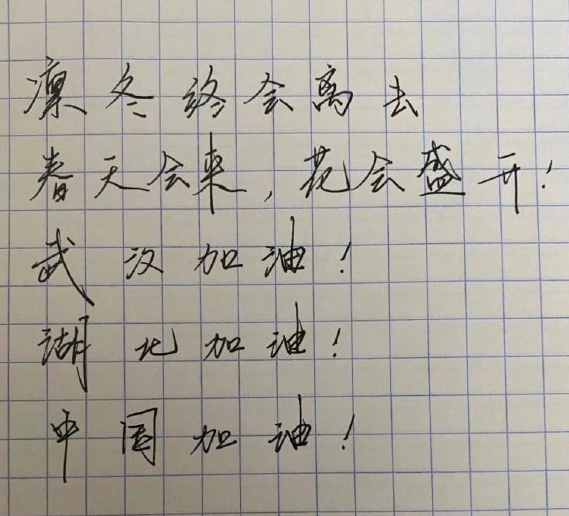 凛冬终会离去
春天会来，花会盛开！
武汉加油！
湖北加油！
中国加油！